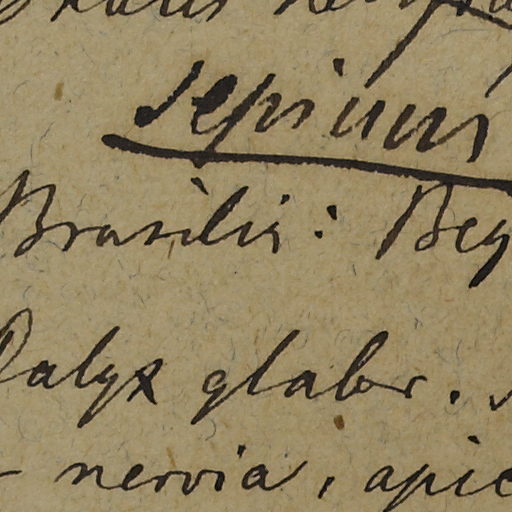 sepium
Brasilia: Bey
Calyx glaber.
nervia, apic